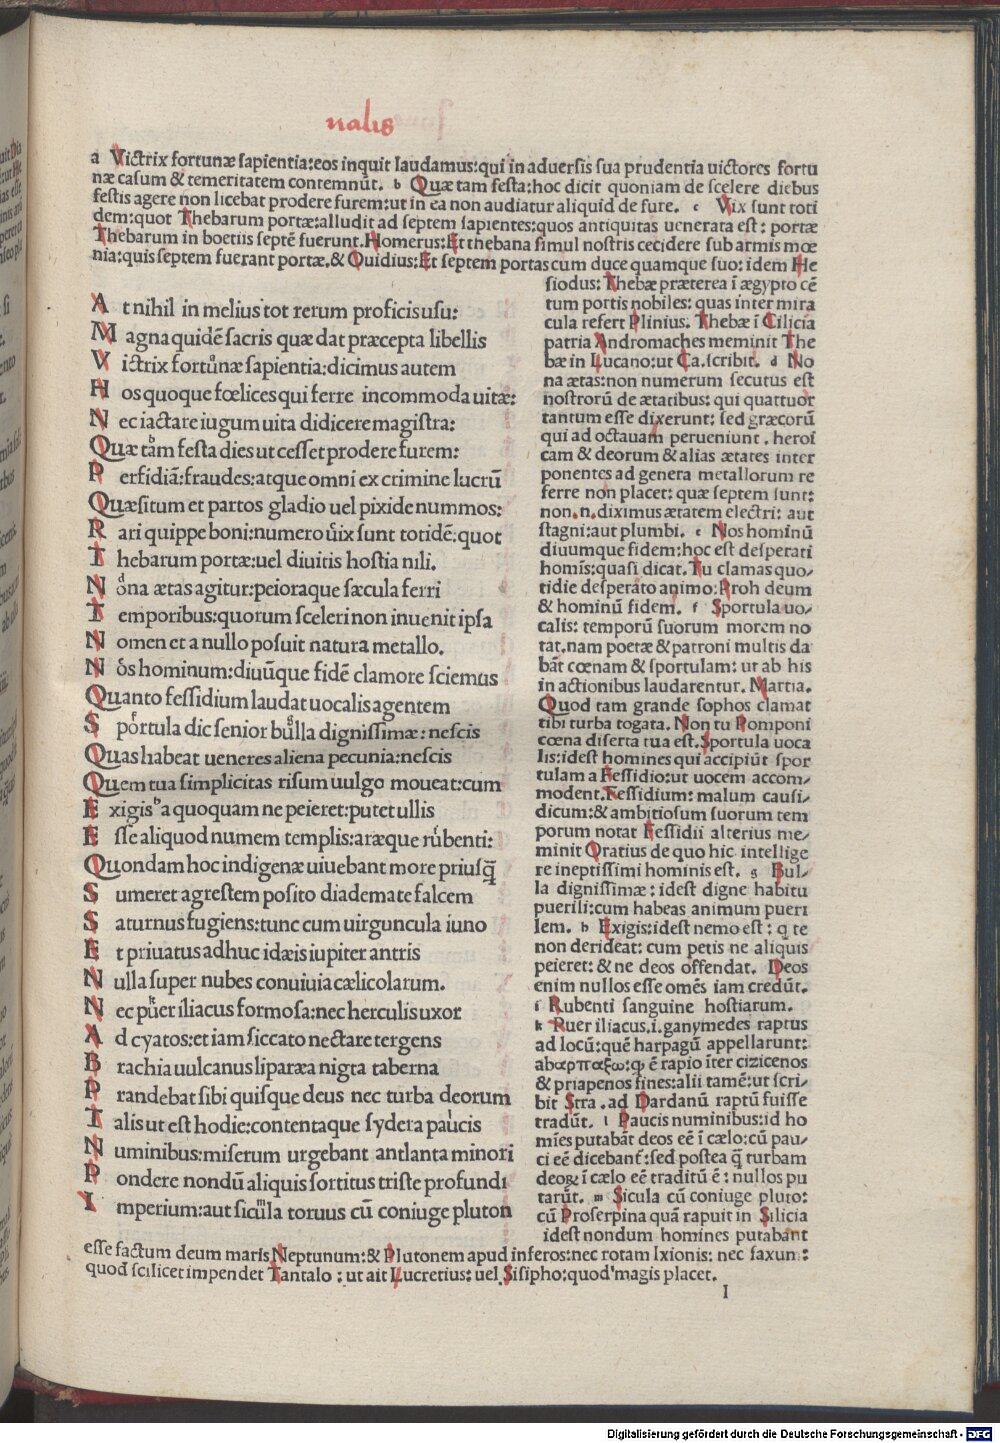 nalis
a Victrix fortunæ sapientia:eos inquit laudamus:qui in aduersis sua prudentia uictores fortu
næ casum & temeritatem contemnūt. b Quæ tam festa:hoc dicit quoniam de scelere diebus
festis agere non licebat prodere furem:ut in ea non audiatur aliquid de fure. c Vix sunt toti
dem:quot Thebarum portæ:alludit ad septem sapientes:quos antiquitas uenerata est: portæ
Thebarum in boetiis septē fuerunt.Homerus:Et thebana simul nostris cecidere sub armis mœ
nia:quis septem fuerant portæ.& Ouidius:Et septem portas cum duce quamque suo: idem He
A t nihil in melius tot rerum proficis usu:
M agna quidē sacris quæ dat præcepta libellis
V ictrix fortunæ sapientia:dicimus autem
H os quoque fœlices qui ferre incommoda uitæ:
N ec iactare iugum uita didicere magistra:
Quæ tam festa dies ut cesset prodere furem:
P erfidiā:fraudes:atque omni ex crimine lucrū
Quæsitum et partos gladio uel pixide nummos:
R ari quippe boni:numero uix sunt totidē:quot
T hebarum portæ:uel diuitis hostia nili.
N ona ætas agitur:peioraque sæcula ferri
T emporibus:quorum sceleri non inuenit ipsa
N omen et a nullo posuit natura metallo.
N os hominum:diuūque fidē clamore sciemus
Quanto fessidium laudat uocalis agentem
S portula dic senior bulla dignissimæ: nescis
Quas habeat ueneres aliena pecunia:nescis
Quem tua simplicitas risum uulgo moueat:cum
E xigis a quoquam ne peieret:putet ullis
E sse aliquod numem templis:aræque rubenti:
Quondam hoc indigenæ uiuebant more priusq̄
S umeret agrestem posito diademate falcem
S aturnus fugiens:tunc cum uirguncula iuno
E t priuatus adhuc idæis iupiter antris
N ulla super nubes conuiuia cælicolarum.
N ec puer iliacus formosa:nec herculis uxor
A d cyatos:et iam siccato nectare tergens
B rachia uulcanus liparæa nigta taberna
P randebat sibi quisque deus nec turba deorum
T alis ut est hodie:contentaque sydera paucis
N uminibus:miserum urgebant antlanta minori
P ondere nondū aliquis sortitus triste profundi
I mperium:aut sicula toruus cū coniuge pluton
siodus: Thebæ præterea ī ægypto cē
tum portis nobiles: quas inter mira
cula refert Plinius. Thebæ ī Cilicia
patria Andromaches meminit The
bæ in Lucano:ut Ca.scribit. d No
na ætas:non numerum secutus est
nostrorū de ætatibus: qui quattuor
tantum esse dixerunt: sed græcorū
qui ad octauam perueniunt. heroi
cam & deorum & alias ætates inter
ponentes ad genera metallorum re
ferre non placet: quæ septem sunt:
non.n.diximus ætatem electri: aut
stagni:aut plumbi. e Nos hominū
diuumque fidem:hoc est desperati
homīs:quasi dicat.Tu clamas quo-
tidie desperato animo:Proh deum
& hominū fidem. f Sportula uo-
calis: temporū suorum morem no
tat.nam poetæ & patroni multis da
bāt cœnam & sportulam: ut ab his
in actionibus laudarentur. Martia.
Quod tam grande sophos clamat
tibi turba togata. Non tu Pomponi
cœna diserta tua est.Sportula uoca
lis:idest homines qui accipiūt spor
tulam a Fessidio:ut uocem accom-
modent.Fessidium: malum causi-
dicum:& ambitiosum suorum tem
porum notat Fessidii alterius me-
minit Oratius de quo hic intellige
re ineptissimi hominis est. g Bul-
la dignissimæ: idest digne habitu
puerili:cum habeas animum pueri
lem. h Exigis:idest nemo est: q te
non derideat: cum petis ne aliquis
peieret: & ne deos offendat. Deos
enim nullos esse omēs iam credūt.
i Rubenti sanguine hostiarum.
k Puer iliacus.i.ganymedes raptus
ad locū:quē harpagū appellarunt:
abαρπαξω:ꝙ ē rapio īter cizicenos
& priapenos fines:alii tamē:ut scri-
bit Stra.ad Dardanū raptū fuisse
tradūt. l Paucis numinibus:id ho
mīes putabāt deos eē ī cælo:cū pau-
ci eē dicebant̄:sed postea q̄ turbam
deoꝝ ī cælo eē traditū ē: nullos pu
tarūt. m Sicula cū coniuge pluto:
cū Proserpina quā rapuit in Silicia
idest nondum homines putabant
esse factum deum maris Neptunum:& Plutonem apud inferos:nec rotam Ixionis: nec saxum:
quod scilicet impendet Tantalo: ut ait Lucretius: uel Sisipho:quod magis placet.
I
Digitalisierung gefördert durch die Deutsche Forschungsgemeinschaft - DFG